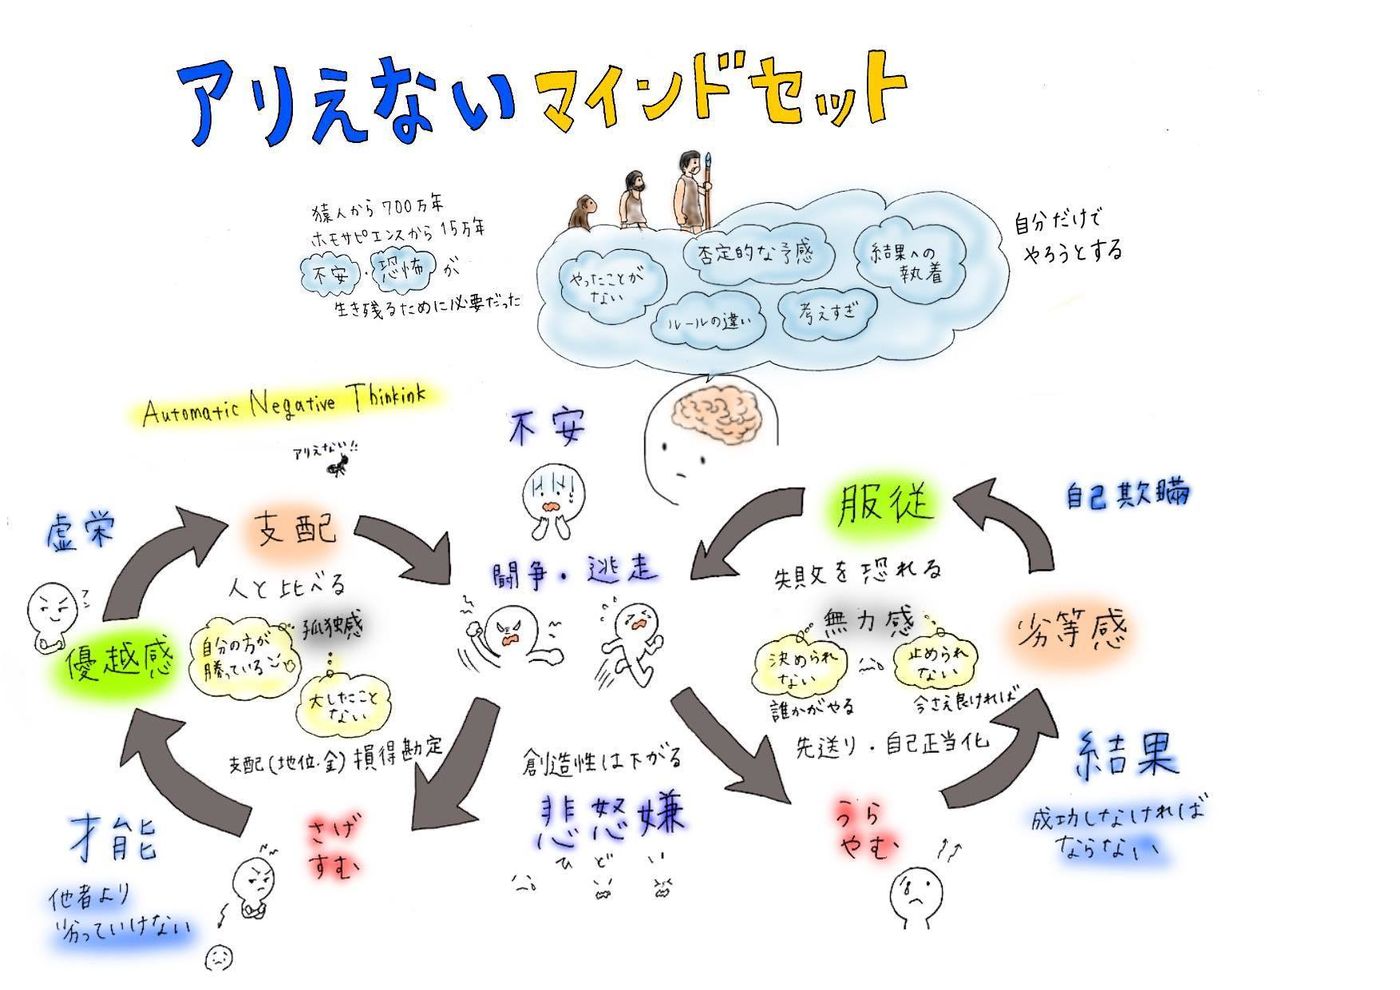 アリえないマインドセット
猿人から700万年
ホモサピエンスから15万年
不安・恐怖が
生き残るために必要だった
やったことが
ない
否定的な予感
結果への
執着
ルールの違い
考えすぎ
自分だけで
やろうとする
Automatic Negative Thinkink
アリえない!!
不安
虚栄
支配
人と比べる
孤独感
自分の方が
勝っている
大したこと
ない
優越感
支配(地位・金)損得勘定
才能
他者より
劣っていけない
さげ
すむ
闘争・逃走
創造性は下がる
悲怒嫌
ひどい
服従
失敗を恐れる
無力感
決められ
ない
止められ
ない
誰かがやる
今さえ良ければ
先送り・自己正当化
自己欺瞞
劣等感
結果
成功しなければ
ならない
うら
やむ